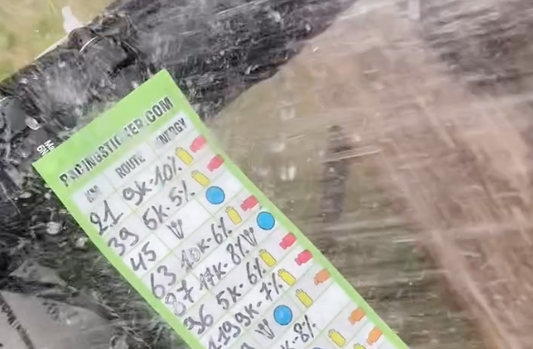 PACINGSTICKER.COM
KM ROUTE ENERGY
21 9K-10%
39 6K-5%
45 W
63 10K-6%
87 17K-8% W
96 5K-6%
119 9K-7%
W
K-8%